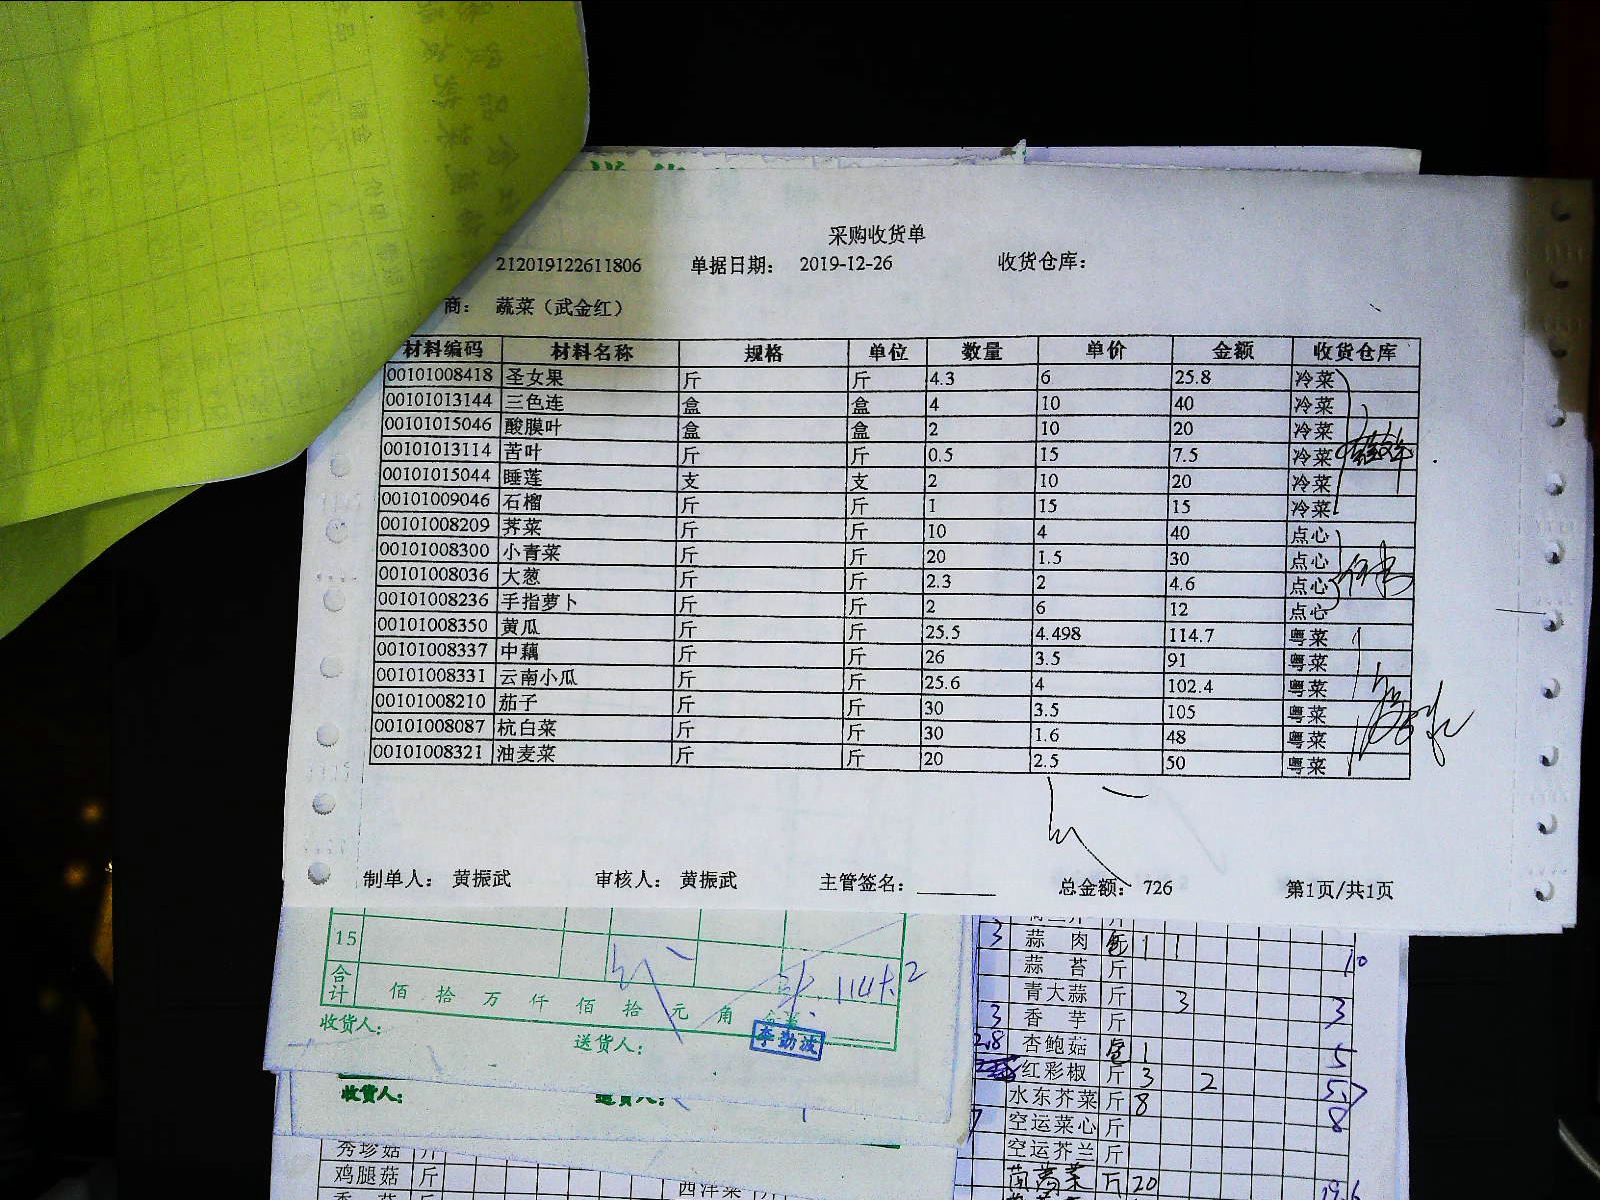 采购收货单
212019122611806 单据日期： 2019-12-26 收货仓库：
商： 蔬菜（武金红）
材料编码 材料名称 规格 单位 数量 单价 金额 收货仓库
00101008418 圣女果 斤 斤 4.3 6 25.8 冷菜
00101013144 三色连 盒 盒 4 10 40 冷菜
00101015046 酸膜叶 盒 盒 2 10 20 冷菜
00101013114 苦叶 斤 斤 0.5 15 7.5 冷菜
00101015044 睡莲 支 支 2 10 20 冷菜
00101009046 石榴 斤 斤 1 15 15 冷菜
00101008209 荠菜 斤 斤 10 4 40 点心
00101008300 小青菜 斤 斤 20 1.5 30 点心
00101008036 大葱 斤 斤 2.3 2 4.6 点心
00101008236 手指萝卜 斤 斤 2 6 12 点心
00101008350 黄瓜 斤 斤 25.5 4.498 114.7 粤菜
00101008337 中藕 斤 斤 26 3.5 91 粤菜
00101008331 云南小瓜 斤 斤 25.6 4 102.4 粤菜
00101008210 茄子 斤 斤 30 3.5 105 粤菜
00101008087 杭白菜 斤 斤 30 1.6 48 粤菜
00101008321 油麦菜 斤 斤 20 2.5 50 粤菜
制单人： 黄振武 审核人： 黄振武 主管签名： 总金额： 726 第1页/共1页
15
合计 佰 拾 万 仟 佰 拾 元 角
收货人： 送货人： 李勤波
收货人：
秀珍菇 斤
鸡腿菇 斤
西洋菜 斤
3 蒜肉 包 1 1 10
蒜苔 斤
青大蒜 斤 3 3
3 香芋 斤
2.8 杏鲍菇 包 1 5
红彩椒 斤 3 2
水东芥菜 斤 8 8
7 空运菜心 斤
空运芥兰 斤
茼蒿菜 斤 20 19.6